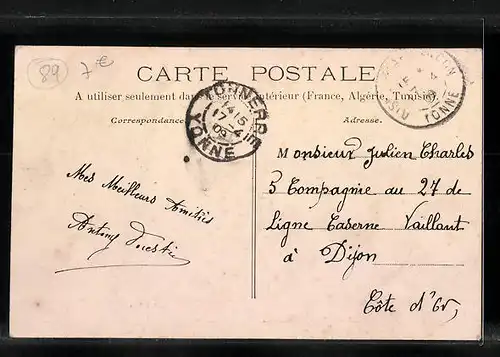 89 7€
CARTE POSTALE
A utiliser seulement dans le service intérieur (France, Algérie, Tunisie).
Correspondance. Adresse.
TONNERRE
14 15
17-4
09
YONNE
YONNE
Mes Meilleurs Amitiés
Antony
Monsieur Julien Charles
5 Compagnie au 27 de
Ligne Caserne Vaillant
à Dijon
Côte d'Or,